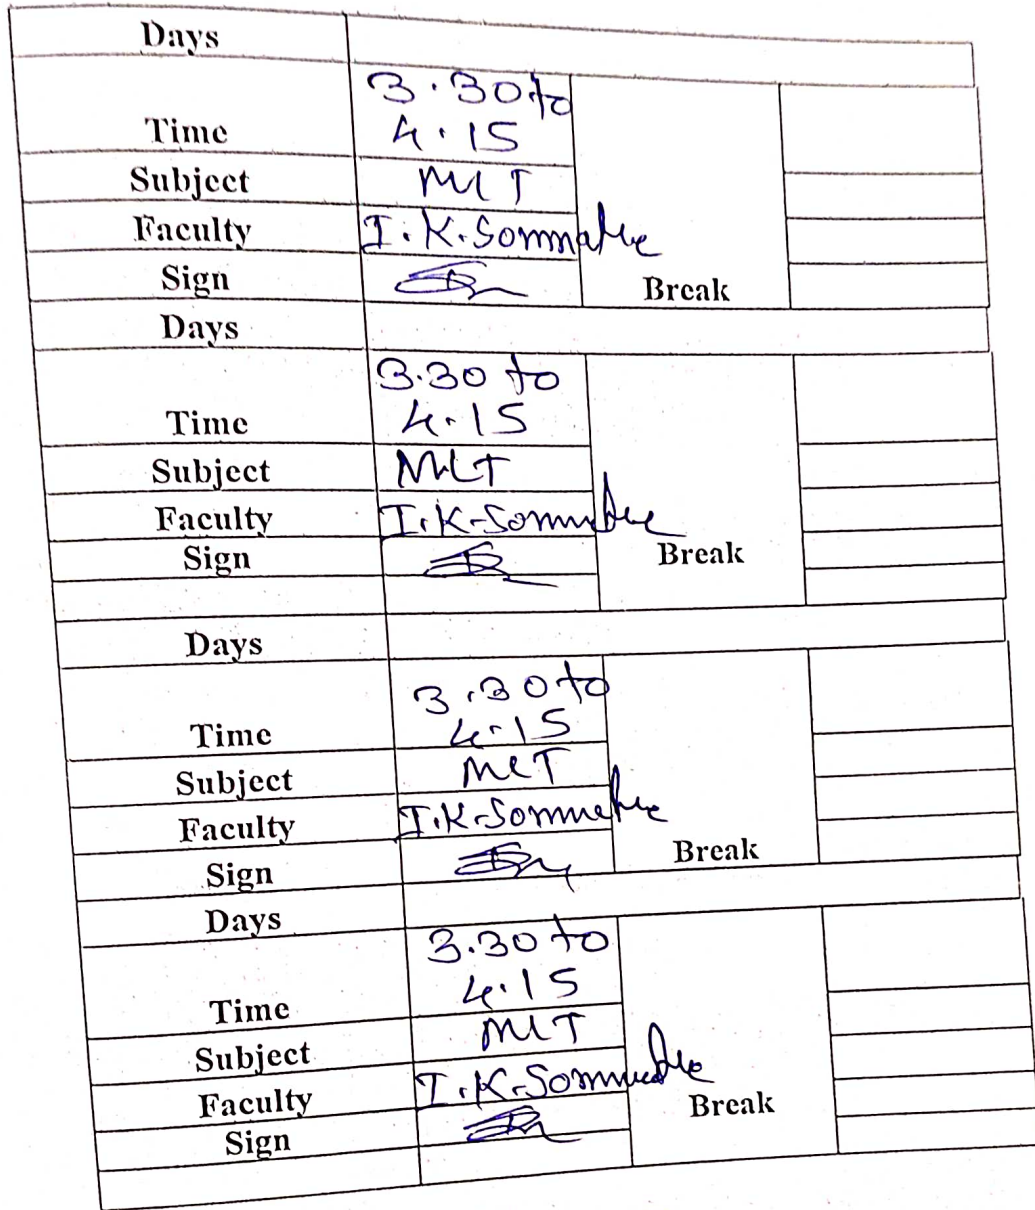 Days
Time 3.30 to
4.15
Subject MLT
Faculty I.K.
Sign
Break
Days
Time 3.30 to
4.15
Subject MLT
Faculty I.K.
Sign
Break
Days
Time 3.30 to
4.15
Subject MLT
Faculty I.K.
Sign
Break
Days
Time 3.30 to
4.15
Subject MLT
Faculty I.K.
Sign
Break